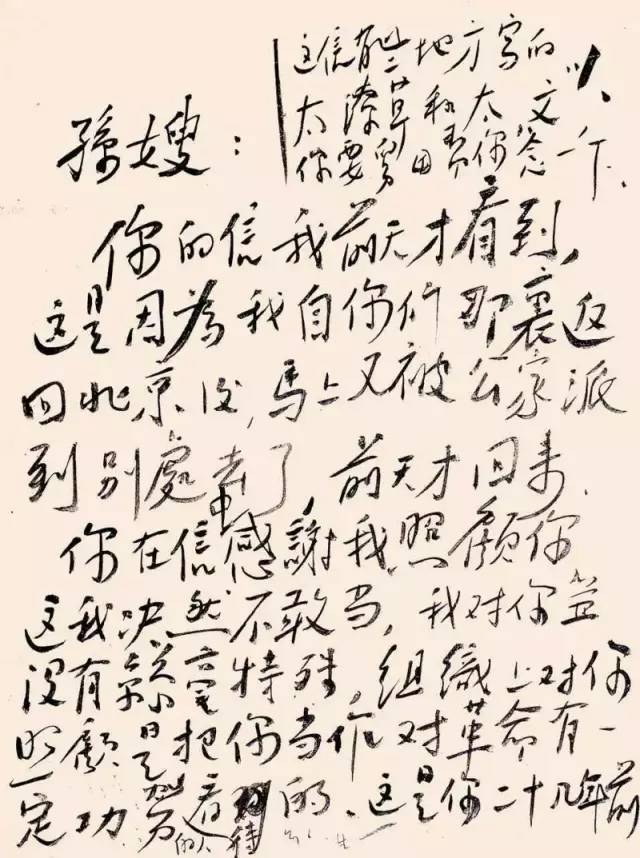 这信有些地方写的
太潦草和太文
你要 你念一下.
孫嫂:
你的信我前天才看到,
这是因為我自你们那裏返
回北京後,馬上又被公家派
到别處去了,前天才回来.
你在信中感謝我照顧你
这我决然不敢当,我对你並
没有 特殊,组織上对你
照顧是把你当作对革命有一
定功劳的人看待的、这是你二十几年前